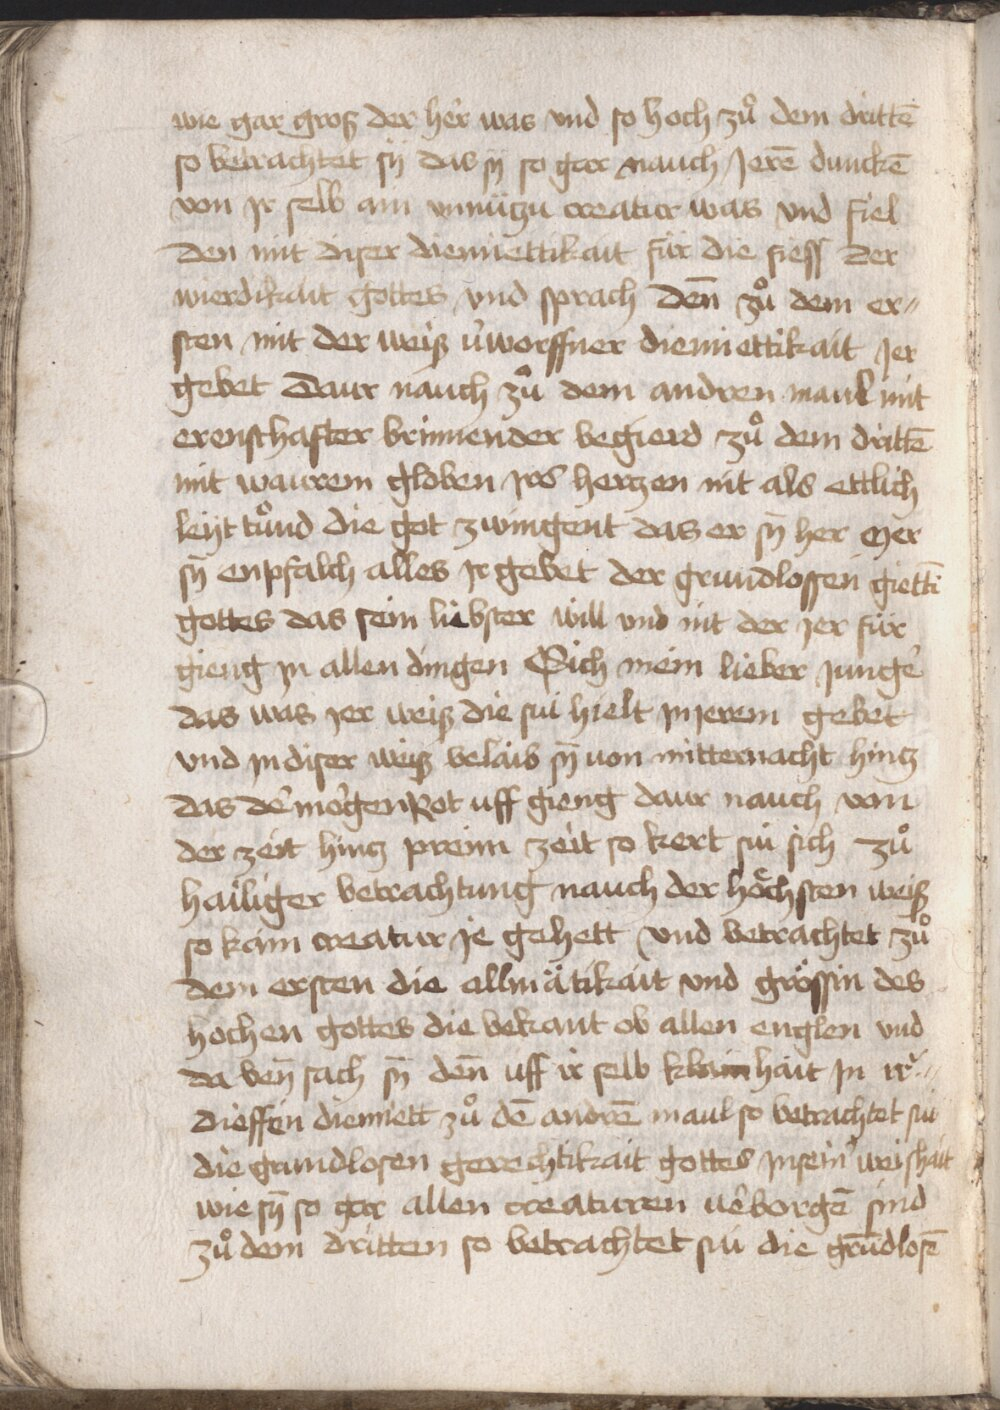 wie gar groß der her was vnd so hoch zů dem drittē
so betrachtet sÿ das sÿ so gar nauch Jerē dunckē
von jr selb ain vnnützu creatur was vnd fiel
den mit diser diemiettikait für die fiess der
wierdikait gottes vnd sprach deñ zů dem er〃
sten mit der weiß v̉worffner diemiettikait Jer
gebet Daur nauch zů dem andren maul mit
erenschafter brinnender begierd zů dem drittē
mit waurem globen jrs hertzen nit als ettlich
leyt tůnd die got zwingent das er sÿ her mer
sÿ enpfalch alles jr gebet der grundlossen gietti
gottes das sein liebster will vnd nit der jer für
gieng jn allen dingen Sich mein lieber junger
das was jer weiß die sui hielt jn jerem gebet
vnd jn diser weiß belaib sÿ von mitternacht hintz
das de morgenRot uff gieng daur nauch von
der zeit hintz preim zeit so kert sui sich zů
hailiger betrachtung nauch der höchsten weiß
so kain creatur je gehett vnd betrachtet zů
dem ersten die allmätikait vnd grössin des
hochen gottes die bekant ob allen englen vnd
da ben sach sÿ deñ uff ir selb klainhait jn ir〃
dieffen diemiett zů dē andrē maul so betrachtet sui
die grundlosen gerechtikait gottes jn sein weishait
wie sÿ so gar allen creaturen verborgē sind
zů dem dritten so betrachtet sui die grūdlosē